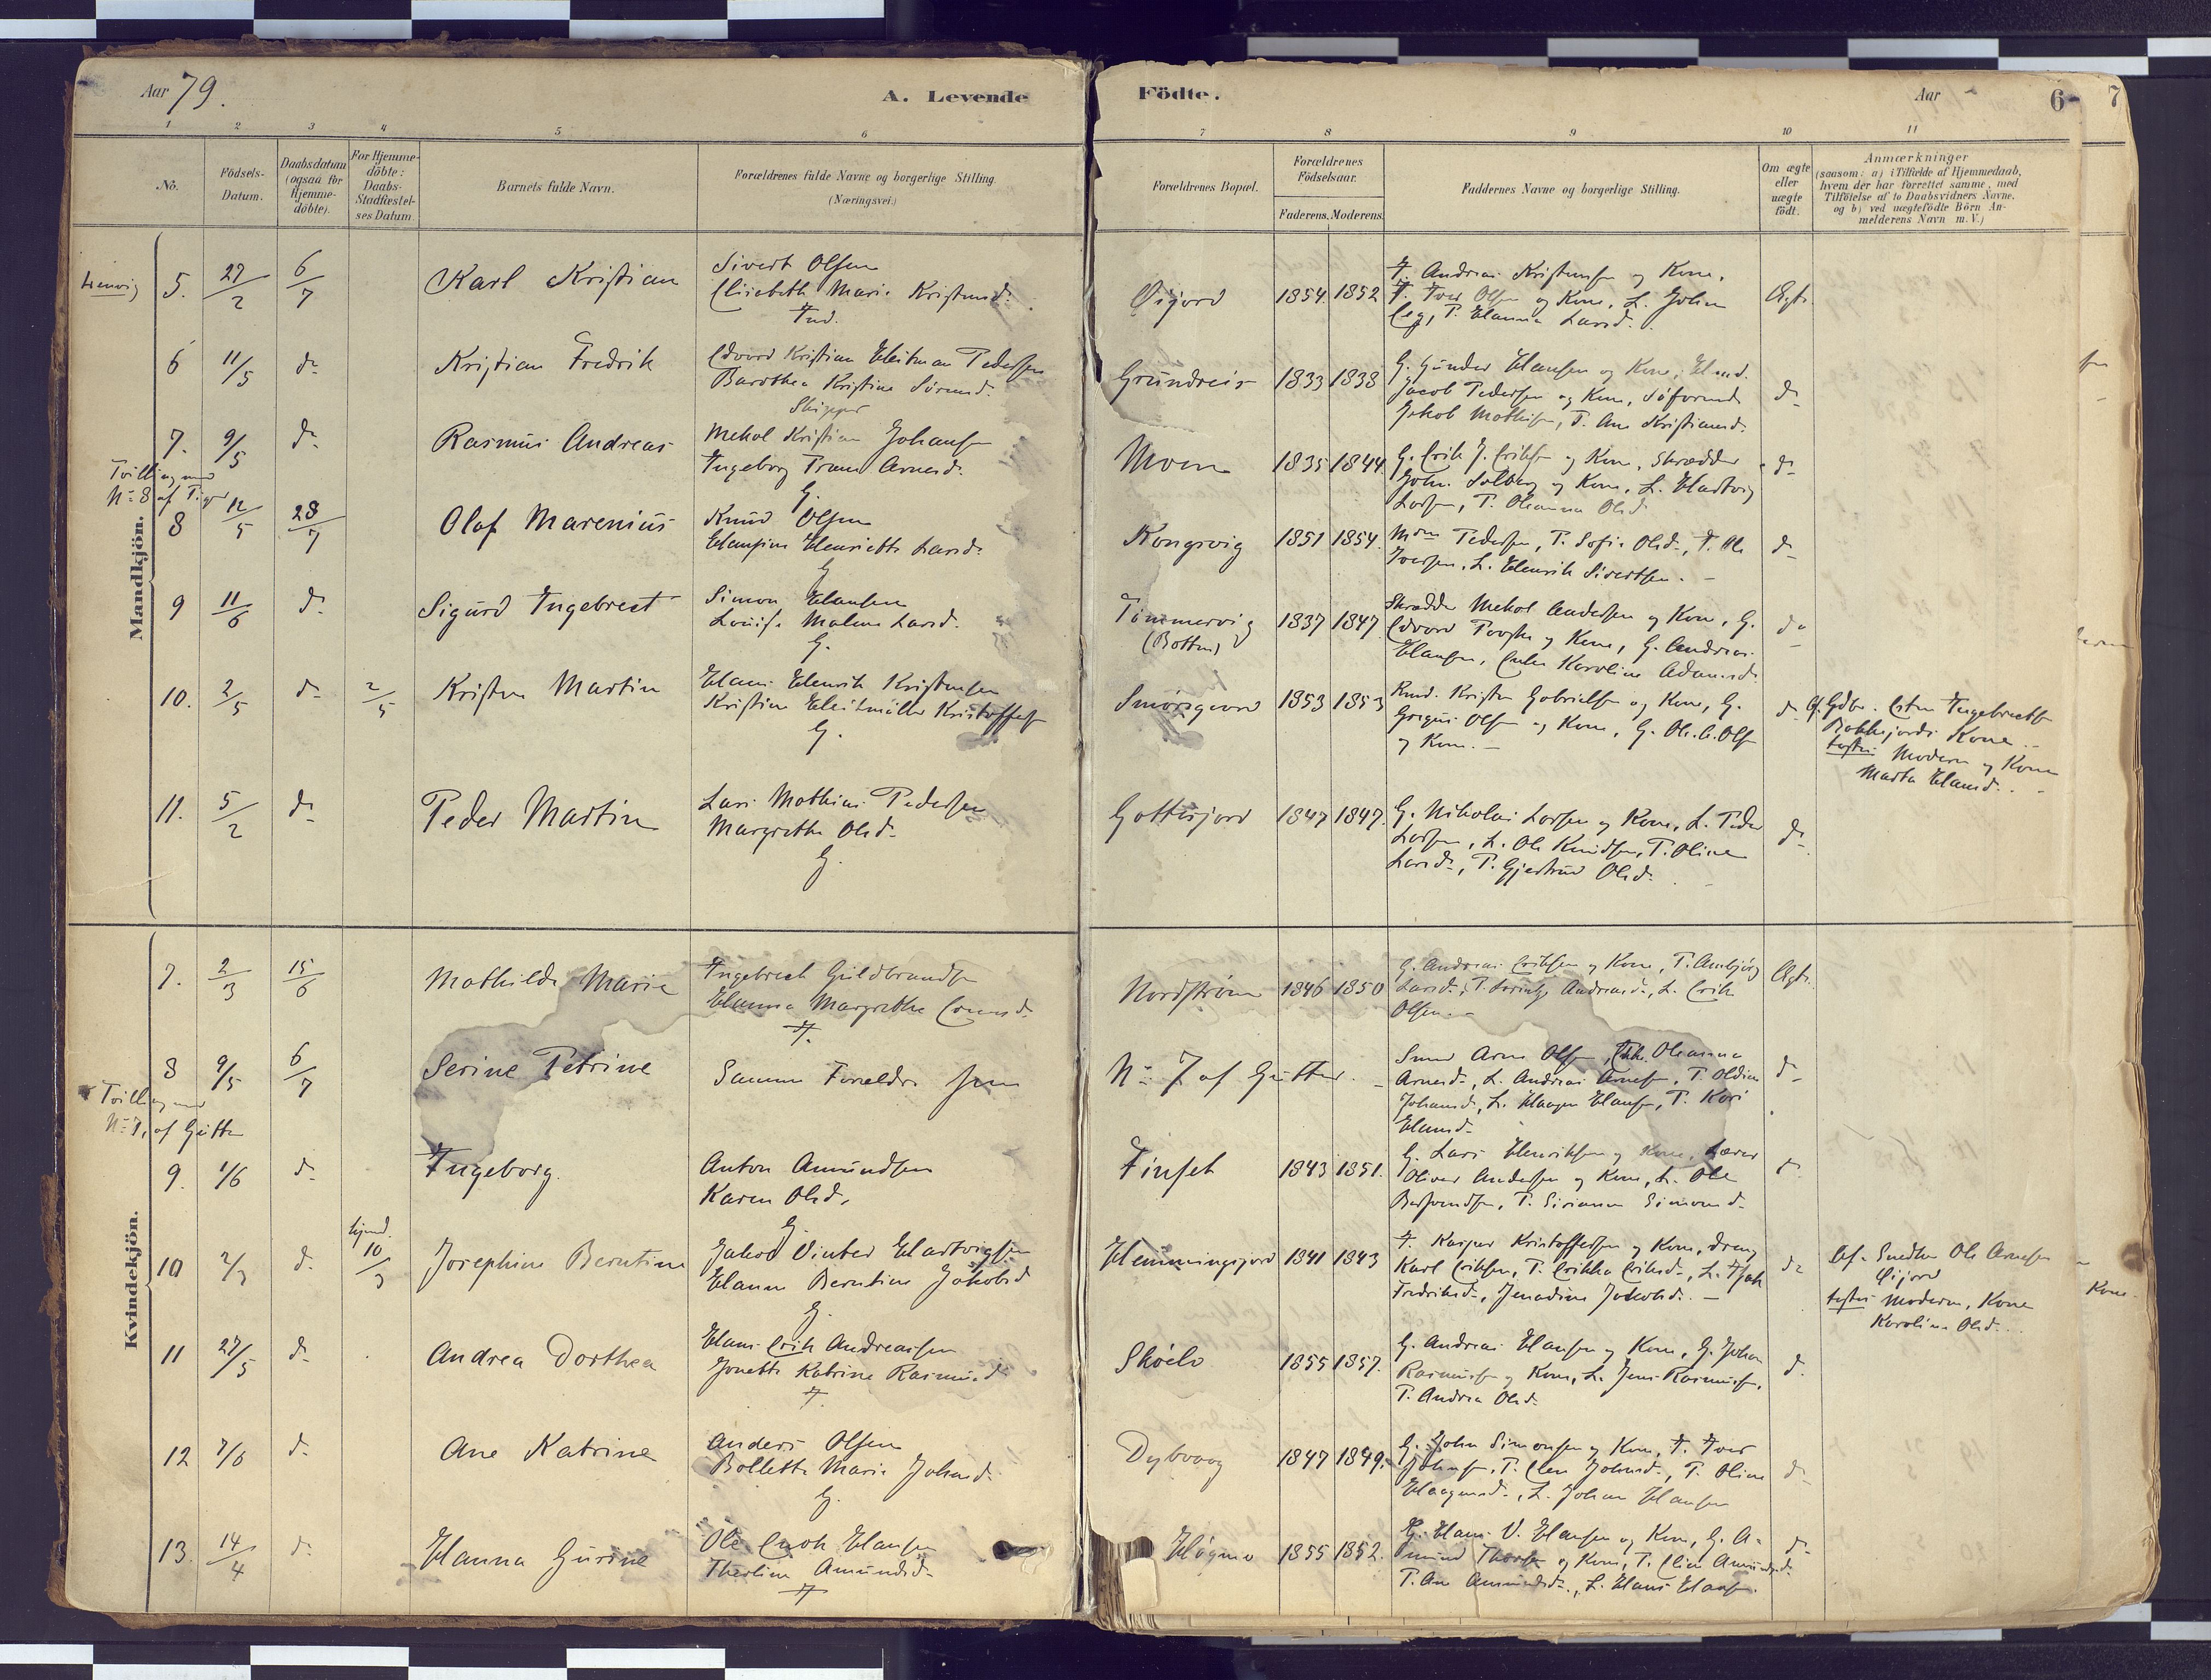 Aar 79.
A. Levende
Födte.
Aar
6
7
1 2 3 4 5 6 7 8 9 10 11
No.
Födsels-Datum.
Daabsdatum (ogsaa for Hjemme-döbte).
For Hjemme-döbte: Daabs-Stadfæstel-ses Datum
Barnets fulde Navn.
Forældrenes fulde Navne og borgerlige Stilling.
(Næringsvei.)
Forældrenes Bopæl.
Forældrenes Födselsaar.
Faderens. Moderens.
Faddernes Navne og borgerlige Stilling.
Om ægte eller uægte födt.
Anmærkninger
(saasom: a) i Tilfælde af Hjemmedaab,
hvem der har forrettet samme, med
Tilföielse af to Daabsvidners Navne.
og b) ved uægtefödte Börn An-
melderens Navn m. V.)
Mandkjön.
5. 27/2 6/7 Karl Kristian
Sivert Olsen
Elisabeth Marie Kristensd.
Ind.
Øijord 1854. 1852
F. Andreas Kristensen og Kone,
F. Iver Olsen og Kone, L. Johan
T. Hanna Larsd.
Ægte
6 11/5 do Kristian Fredrik
Edvard Kristian Heitman Pedersen
Barothea Kristine Sørensd.
Skipper
Grundreis 1833 1838
G. Gunder Hansen og Kone,
Jacob Pedersen og Kone,
Jakob Mathisen, T. Ane Kristiansd.
do
7. 9/5 do Rasmus Andreas
Mekal Kristian Johansen
Ingeborg Arnesd.
G.
Moen 1835 1844
G. Erik J. Eriksen og Kone, Skrædder
John Solberg og Kone, L. Hartvig
Larsen, T. Oleanna Olsd.
do
Tvilling med
No 8 af Piger
8 12/5 28/7 Olaf Marenius
Knud Olsen
Hansine Henriette Larsd.
G
Kongsvig 1851 1854.
Pedersen, T. Sofie Olsd., F. Ole
Iversen, L. Henrik Sivertsen.
do
9 11/6 do Sigurd Ingebrest
Simon Hansen
Lovise Malene Larsd.
G.
Tømmervig
(Botten)
1837 1847
Skrædder Mekal Andersen og Kone, G.
Edvard og Kone, G. Andreas
Hansen, Karoline Adamsd.
do
10. 2/5 do 2/5 Kristen Martin
Hans Henrik Kristensen
Kristine Heitmüller Kristoffersd
G.
Smørsgaard 1853 1853
Kristen Gabrielsen og Kone, G.
Olsen og Kone, G. Ole C. Olsen
og Kone.
do
Af Ingebrectsen
Kone
Moderen og Kone
Marta Hansd.
11. 5/2 do Peder Martin
Lars Mathias Pedersen
Margrethe Olsd.
G.
Gottesjord 1847 1847.
G. Nikolai Larsen og Kone, L. Peder
Larsen, L. Ole Knudsen, T. Oline
Larsd., T. Gjertrud Olsd.
do
Kvindekjön.
7. 2/3 15/6 Mathilde Marie
Ingebrect Guldbrandsen
Hanna Margrethe
F.
Nordstrøm 1846 1850
G. Andreas Eriksen og Kone, T. Anbjørg
Larsd., T. Andreasd., L. Erik
Olsen.
Ægte
8 9/5 6/7 Serine Petrine
Samme Forældre som
No 7 af Gutter.
Arne Olsen, Enke Oleanna
Arnesd., L. Andreas Arnesen, T. Oldine
Johansd., L. Haagen Hansen, T. Kari
Hansd.
do
Tvilling med
No 7, af Gutter
9. 1/6 do Ingeborg.
Anton Amundsen
Karen Olsd.
G.
Finset 1843 1851.
G. Lars Henriksen og Kone, Lærer
Oliver Andersen og Kone, L. Ole
T. Sirianna Simonsd.
do
10 2/3 do
hjemd. 10/3
Josephine Berntine
Jakob Vinter Hartvigsen
Hanna Berntine Jakobsd
G.
Hemmingsjord 1841 1843
F. Kasper Kristoffersen og Kone, dreng
Karl Eriksen, T. Erikka Eriksd., L. Isak
Fredriksen, Jenadine Jakobsd.
do
Af Ole Arnesen
Øijord
Moderen, Kone
Karoline Olsd.
11 27/5 do Andrea Dorthea
Hans Erik Andreassen
Jonette Katrine Rasmusd.
F.
Skøelv 1855 1857.
G. Andreas Hansen og Kone, G. Johan
Rasmussen og Kone, L. Jens Rasmussen,
T. Andrea Olsd.
do
12 7/6 do Ane Katrine
Anders Olsen
Bollette Marie Johnsd.
G.
Dybvaag 1847 1849.
G. John Simonsen og Kone, F. Iver
Johnsen, T. Elen Johnsd., T. Oline
Haagensd., L. Johan Hansen
do
13. 14/4 do Hanna Gurine
Ole Enok Hansen
Therline Amundsd.
F
Høgmo 1855 1852.
G. Hans V. Hansen og Kone, G. A-
mund Thorsen og Kone, T. Elin Amundsd.
T. Ane Amundsd., L. Hans Hansen.
do
Kone.